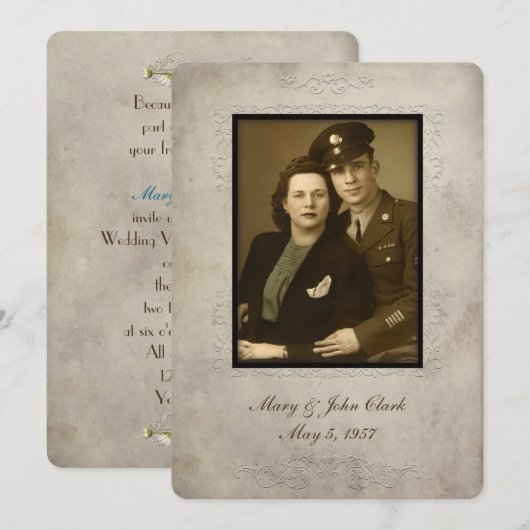 Becau
part
your fri
Mary
invite u
Wedding V
o
the
two
at six o'c
All
12
Yo
Mary & John Clark
May 5, 1957